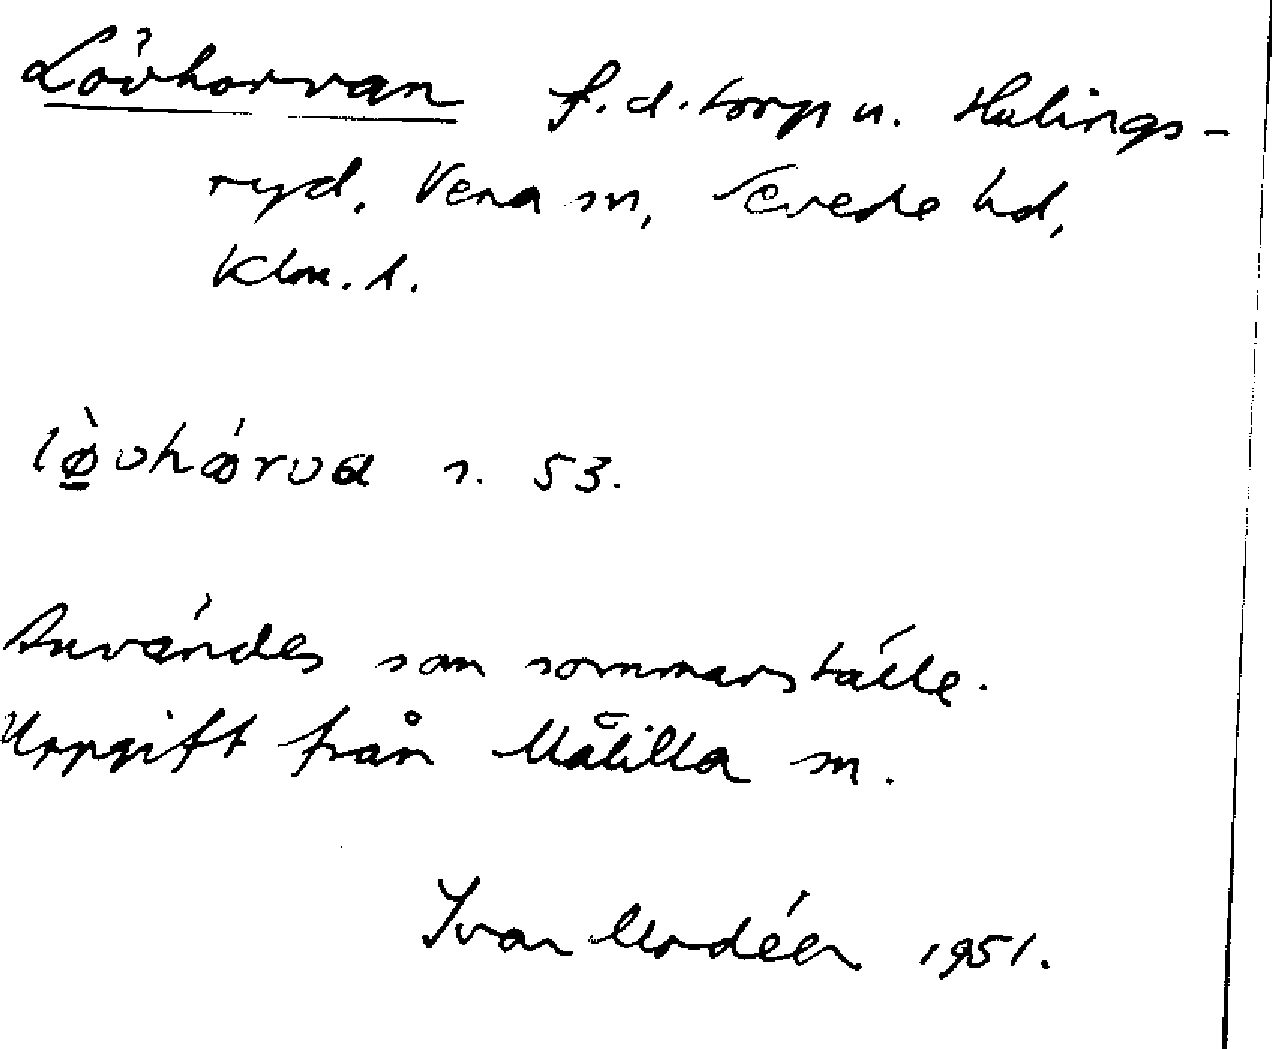 Lövhorvan f.d. torp u. Halings-
ryd, Vena sn, Sevede hd,
Klm. l.
lø̀vhǿrva s. 53.
Användes som sommarställe.
Uppgift från Målilla sn.
Ivar Modéer 1951.